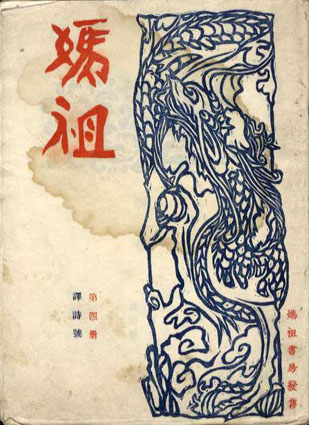 媽祖
第四冊
譯詩號
媽祖書房發售